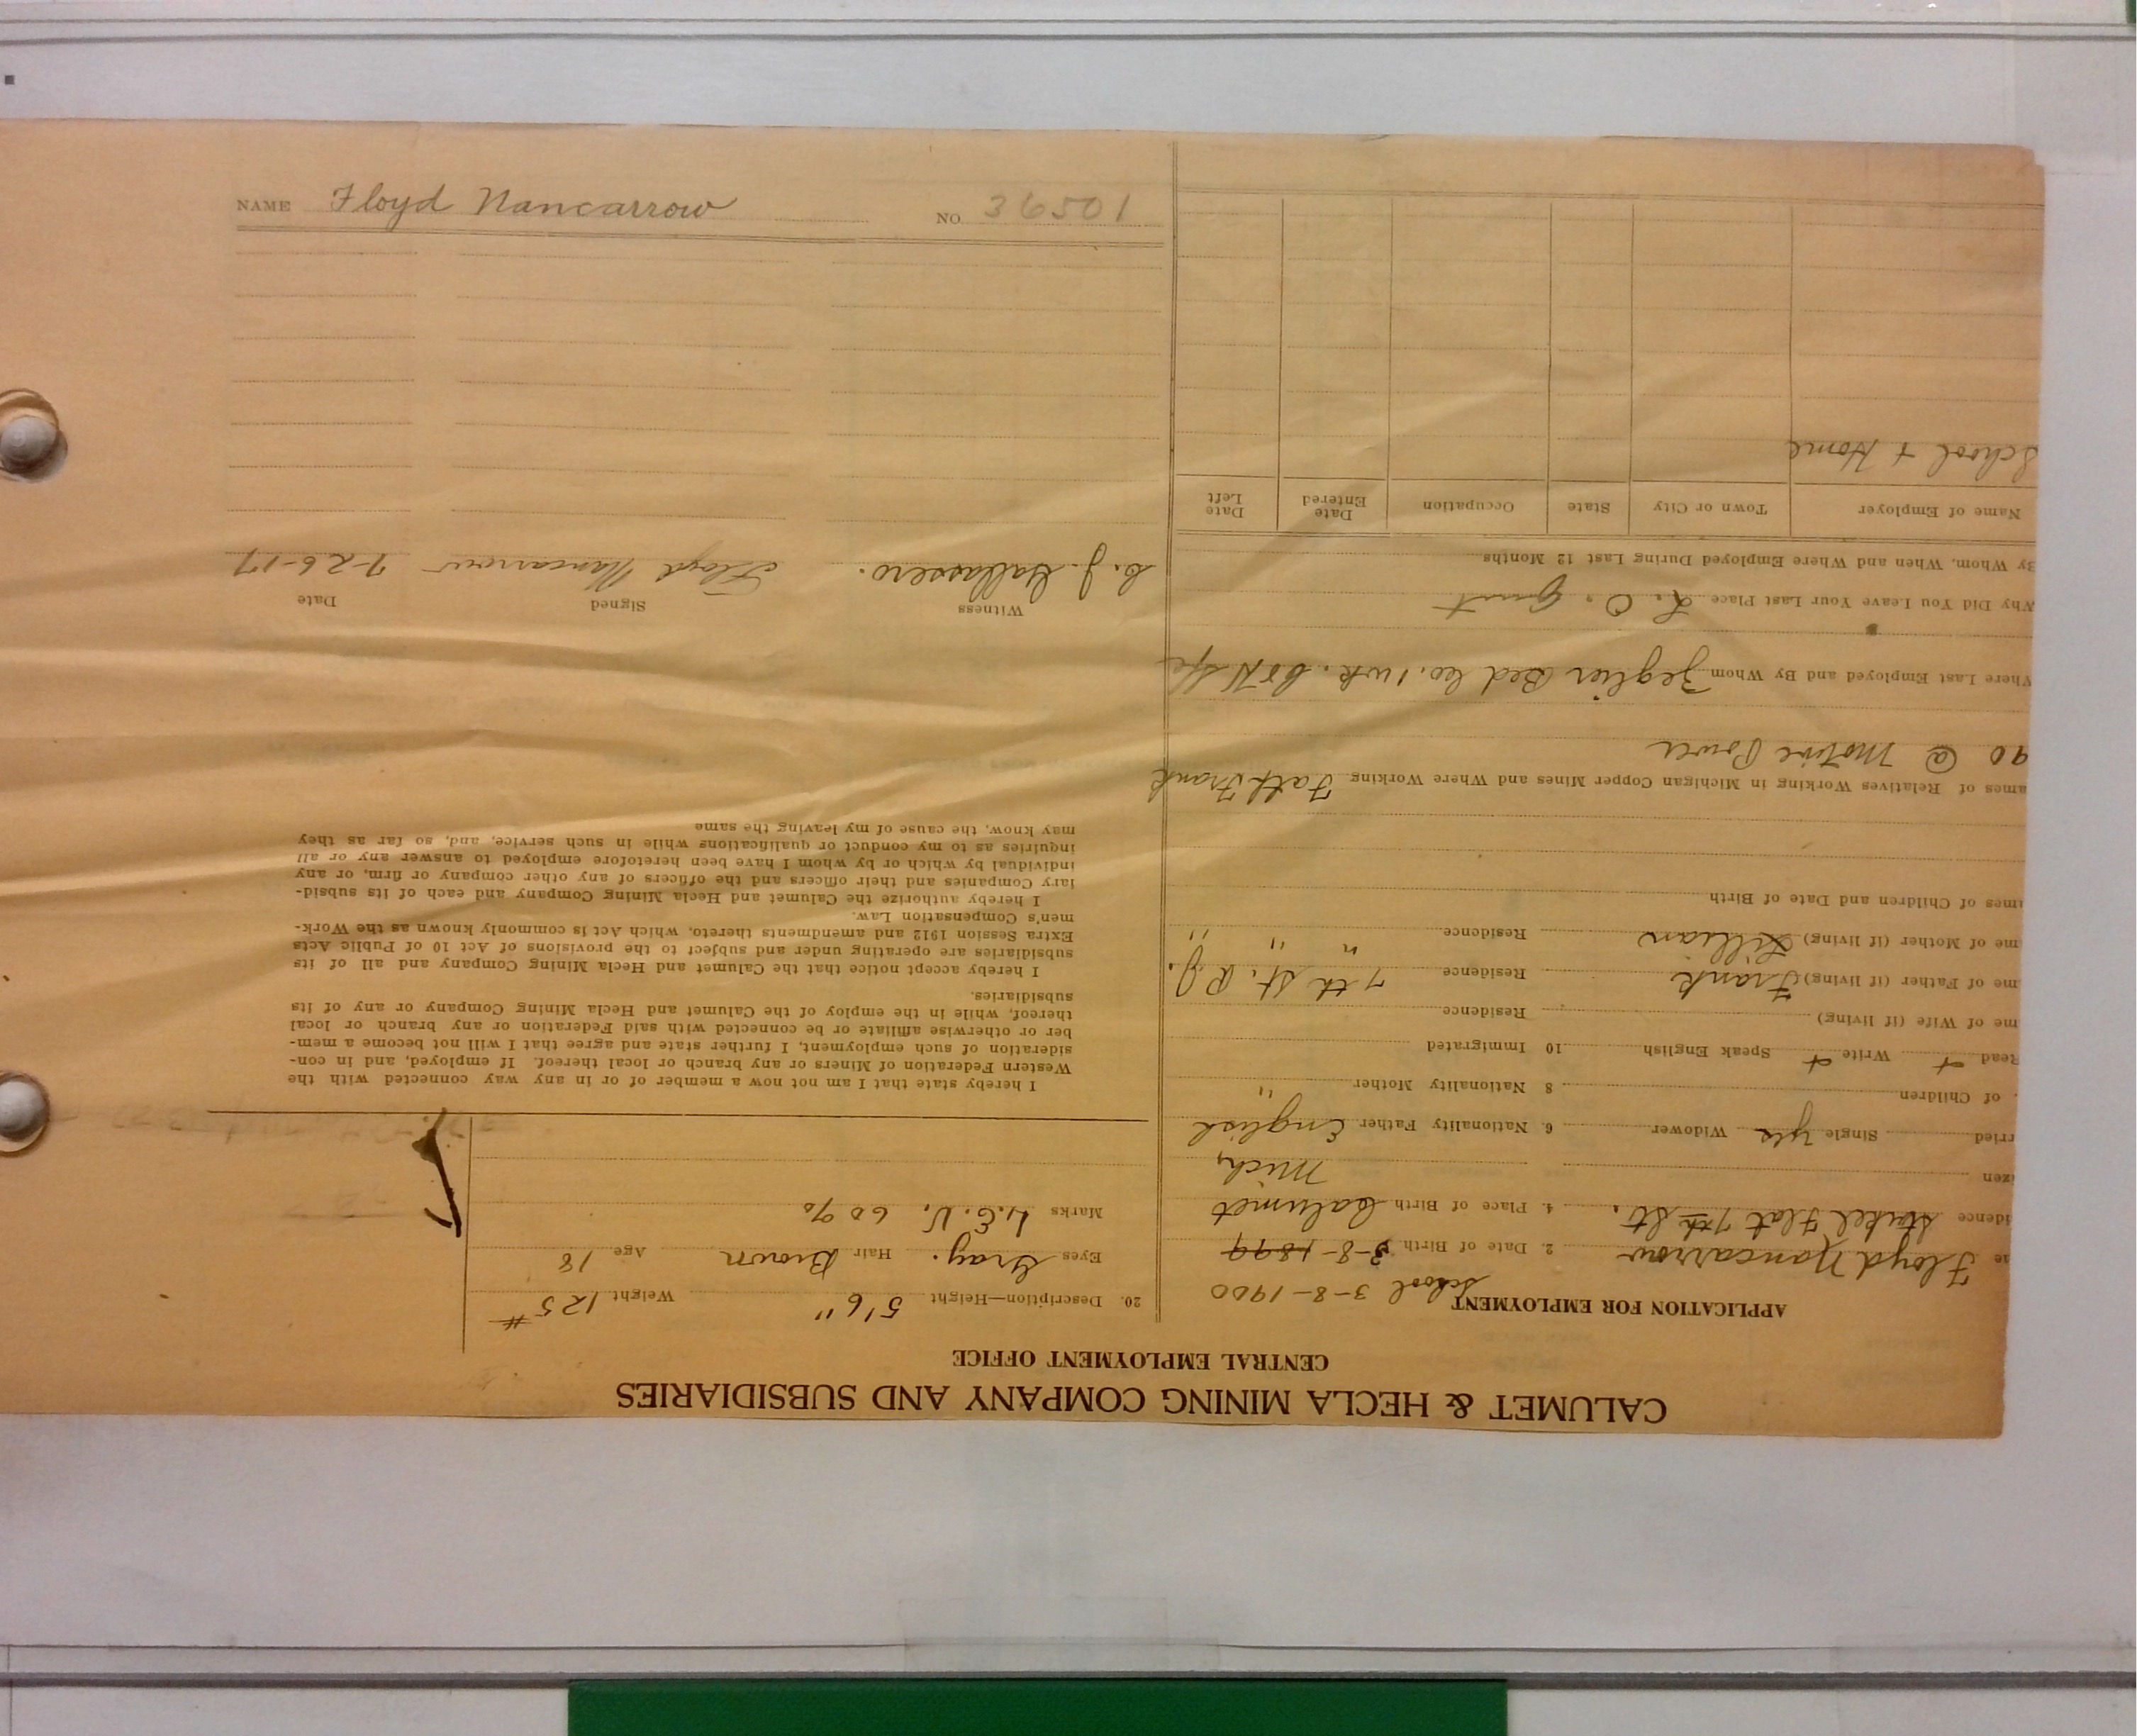 CALUMET & HECLA MINING COMPANY AND SUBSIDIARIES
CENTRAL EMPLOYMENT OFFICE
APPLICATION FOR EMPLOYMENT School 3-8-1900
me Floyd Nancarrow 2. Date of Birth 3-8-1899
idence Flat 7th St. 4. Place of Birth Calumet
izen Mich,
rried Single yes Widower 6. Nationality Father English
. of Children 8 Nationality Mother "
Read + Write + Speak English 10 Immigrated
me of Wife (if living) Residence
me of Father (if living) Frank Residence 7th St.
me of Mother (if living) Lillian Residence " " "
ames of Children and Date of Birth
ames of Relatives Working in Michigan Copper Mines and Where Working Fath Frank
90 @ Motive Power
Where Last Employed and By Whom Bed Co. 1 wk.
Why Did You Leave Your Last Place
By Whom, When and Where Employed During Last 12 Months
Name of Employer Town or City State Occupation Date Entered Date Left
School + Home
20. Description—Height 5'6" Weight 125 #
Eyes Gray. Hair Brown Age 18
Marks 60%
I hereby state that I am not now a member of or in any way connected with the
Western Federation of Miners or any branch or local thereof. If employed, and in con-
sideration of such employment, I further state and agree that I will not become a mem-
ber or otherwise affiliate or be connected with said Federation or any branch or local
thereof, while in the employ of the Calumet and Hecla Mining Company or any of its
subsidiaries.
I hereby accept notice that the Calumet and Hecla Mining Company and all of its
subsidiaries are operating under and subject to the provisions of Act 10 of Public Acts
Extra Session 1912 and amendments thereto, which Act is commonly known as the Work-
men's Compensation Law.
I hereby authorize the Calumet and Hecla Mining Company and each of its subsid-
iary Companies and their officers and the officers of any other company or firm, or any
individual by which or by whom I have been heretofore employed to answer any or all
inquiries as to my conduct or qualifications while in such service, and, so far as they
may know, the cause of my leaving the same
Witness Signed Date
C. J. Floyd Nancarrow 7-26-17
NAME Floyd Nancarrow NO. 36501